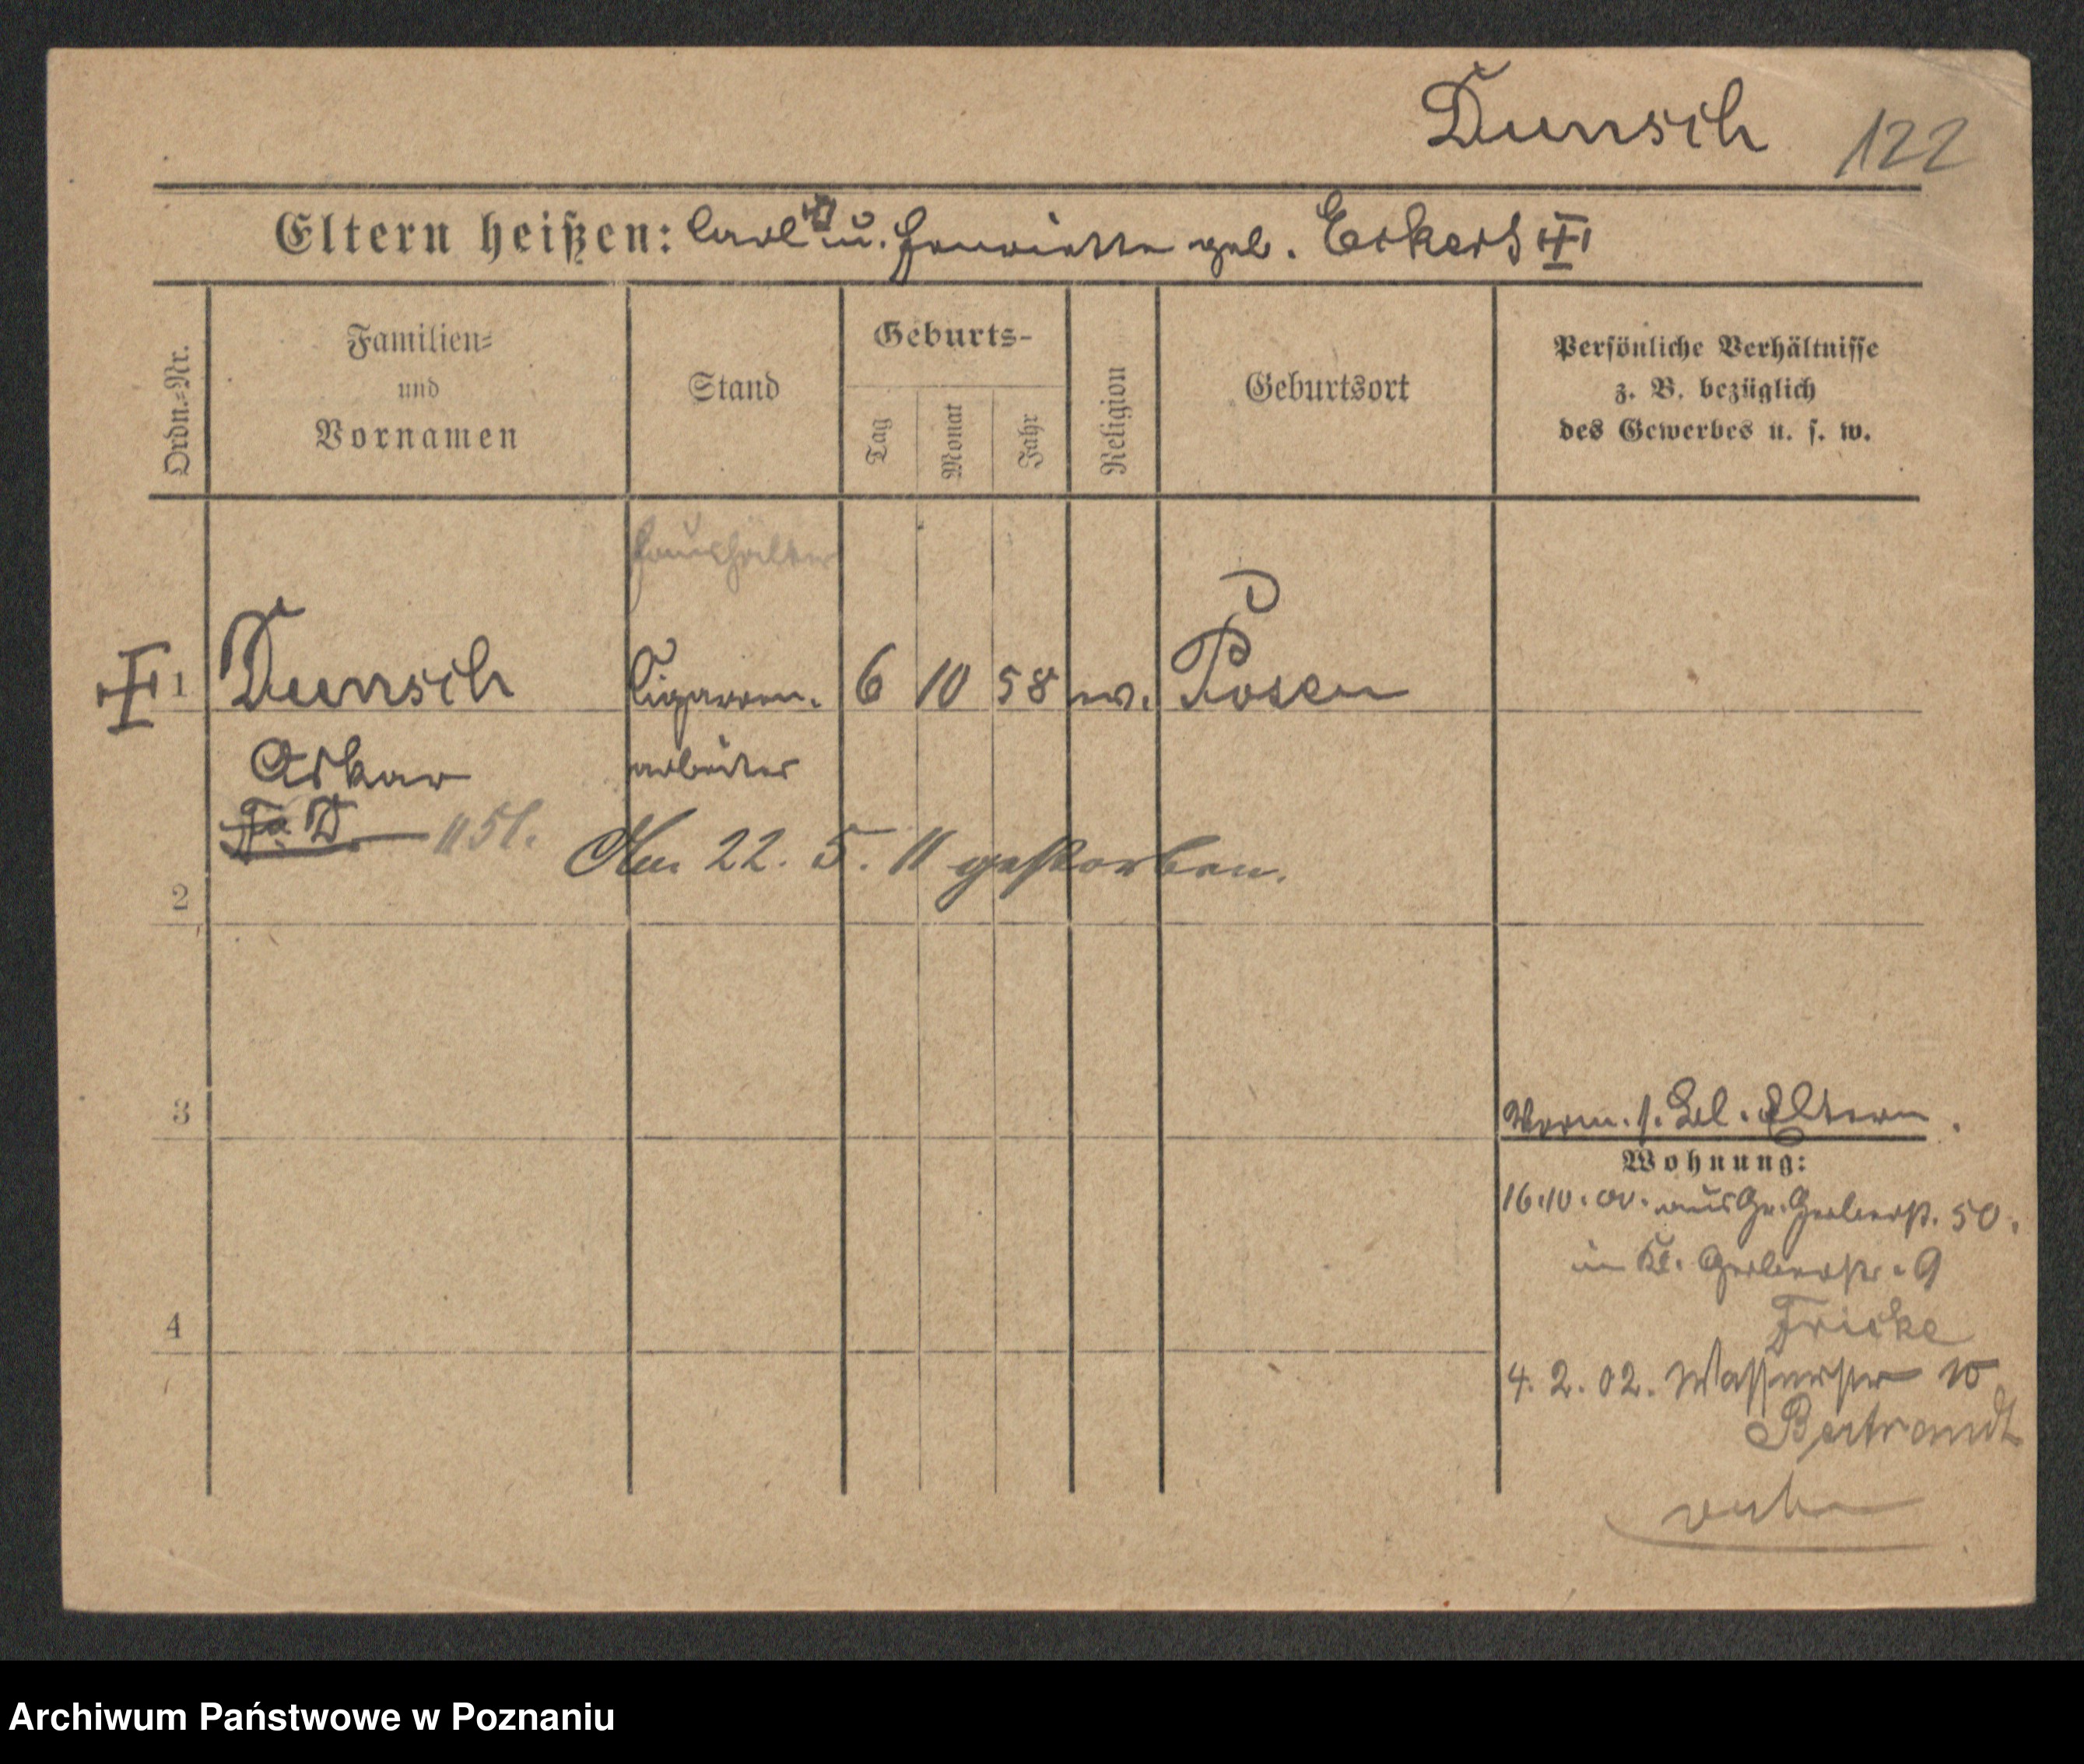 Dunsch 122
Eltern heißen: Carl u. Henriette geb. Eckert
Ordn.=Nr.
Familien=
und
Vornamen
Stand
Geburts-
Tag
Monat
Jahr
Religion
Geburtsort
Persönliche Verhältnisse
z. B. bezüglich
des Gewerbes u. s. w.
Haushälter
1 Dunsch Cigarren- 6 10 58 ev. Posen
Oskar arbeiter
1151.
Am 22. 5. 11 gestorben.
2
3
Verm. s. Bel. Eltern.
Wohnung:
16.10.00. aus Gr. Gerberst. 50.
in Kl. Gerberstr. 9
Fricke
4
4. 2. 02. Wasserstr 10
Bertrandt
Archiwum Państwowe w Poznaniu